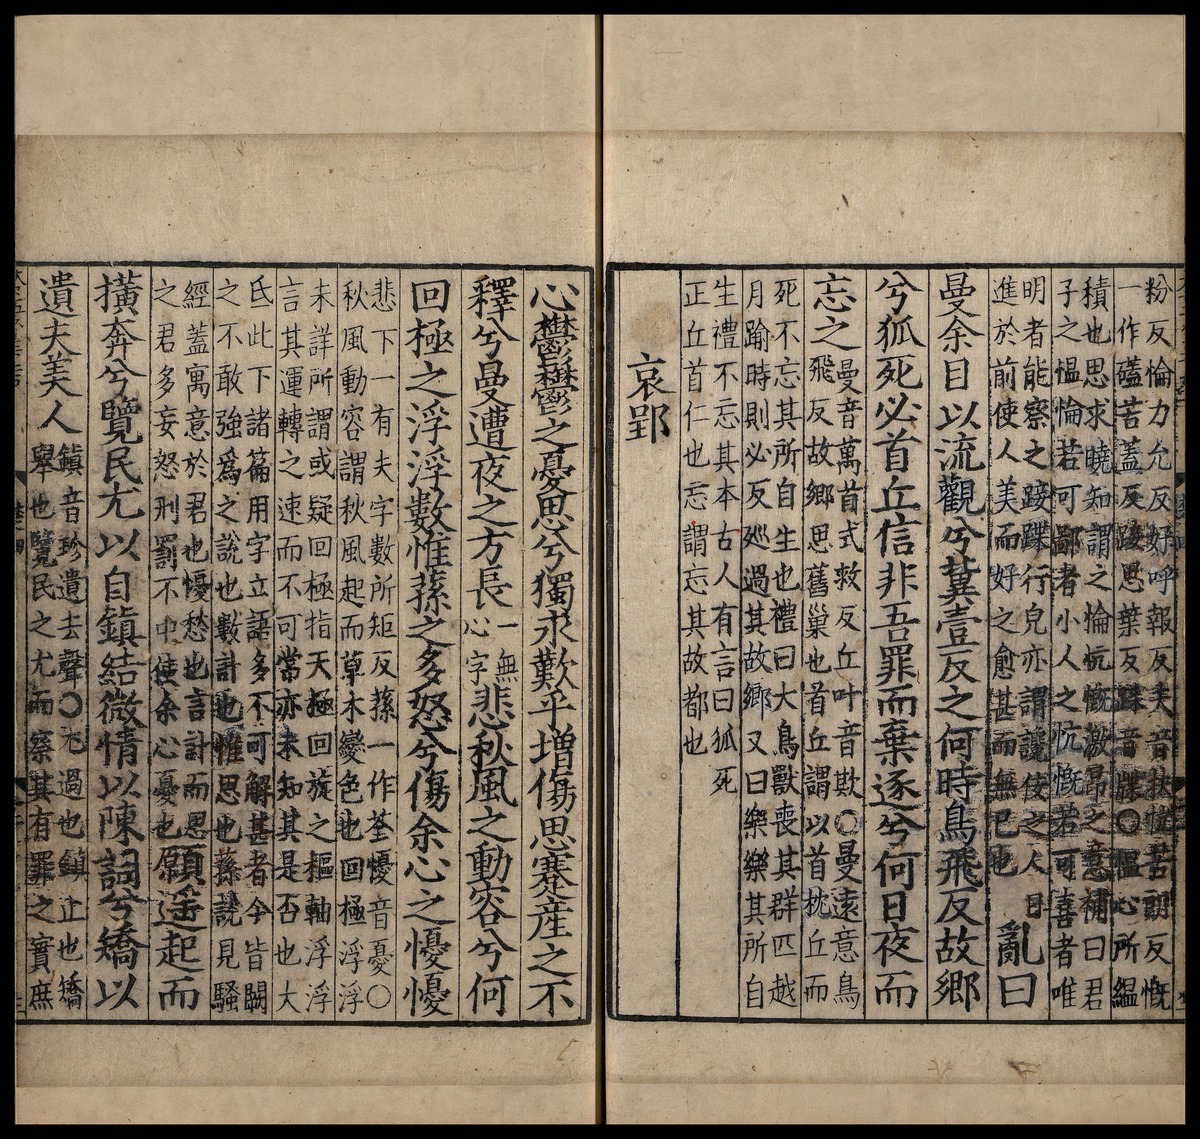 粉反惀力允反好呼報反夫音扶忼苦朗反慨
一作礚苦蓋反踥思葉反蹀音牒○愠心所縕
積也思求曉知謂之惀忼慨激昂之意補曰君
子之愠惀若可鄙者小人之忼慨若可喜者唯
明者能察之踥蹀行皃亦謂讒佞之人日
進於前使人美而好之愈甚而無已也
亂曰
曼余目以流觀兮冀壹反之何時鳥飛反故鄉
兮狐死必首丘信非吾罪而棄逐兮何日夜而
忘之
曼音萬首式救反丘叶音欺○曼遠意鳥
飛反故鄉思舊巢也首丘謂以首枕丘而
死不忘其所自生也禮曰大鳥獸喪其群匹越
月踰時則必反廵過其故鄉又曰樂樂其所自
生禮不忘其本古人有言曰狐死
正丘首仁也忘謂忘其故都也
哀郢
心鬱鬱之憂思兮獨永歎乎增傷思蹇產之不
釋兮曼遭夜之方長
一無
心字
悲秋風之動容兮何
回極之浮浮數惟蓀之多怒兮傷余心之懮懮
悲下一有夫字數所矩反蓀一作荃懮音憂○
秋風動容謂秋風起而草木變色也回極浮浮
未詳所謂或疑回極指天極回旋之樞軸浮浮
言其運轉之速而不可常亦未知其是否也大
氐此下諸篇用字立語多不可解甚者今皆闕
之不敢強為之說也數計也惟思也蓀說見騷
經蓋寓意於君也懮愁也言計而思
之君多妄怒刑罰不中使余心憂也
願遥起而
橫奔兮覽民尤以自鎮結微情以陳詞兮矯以
遺夫美人
鎮音珍遺去聲○尤過也鎮止也矯
舉也覽民之尤而察其有罪之實庶